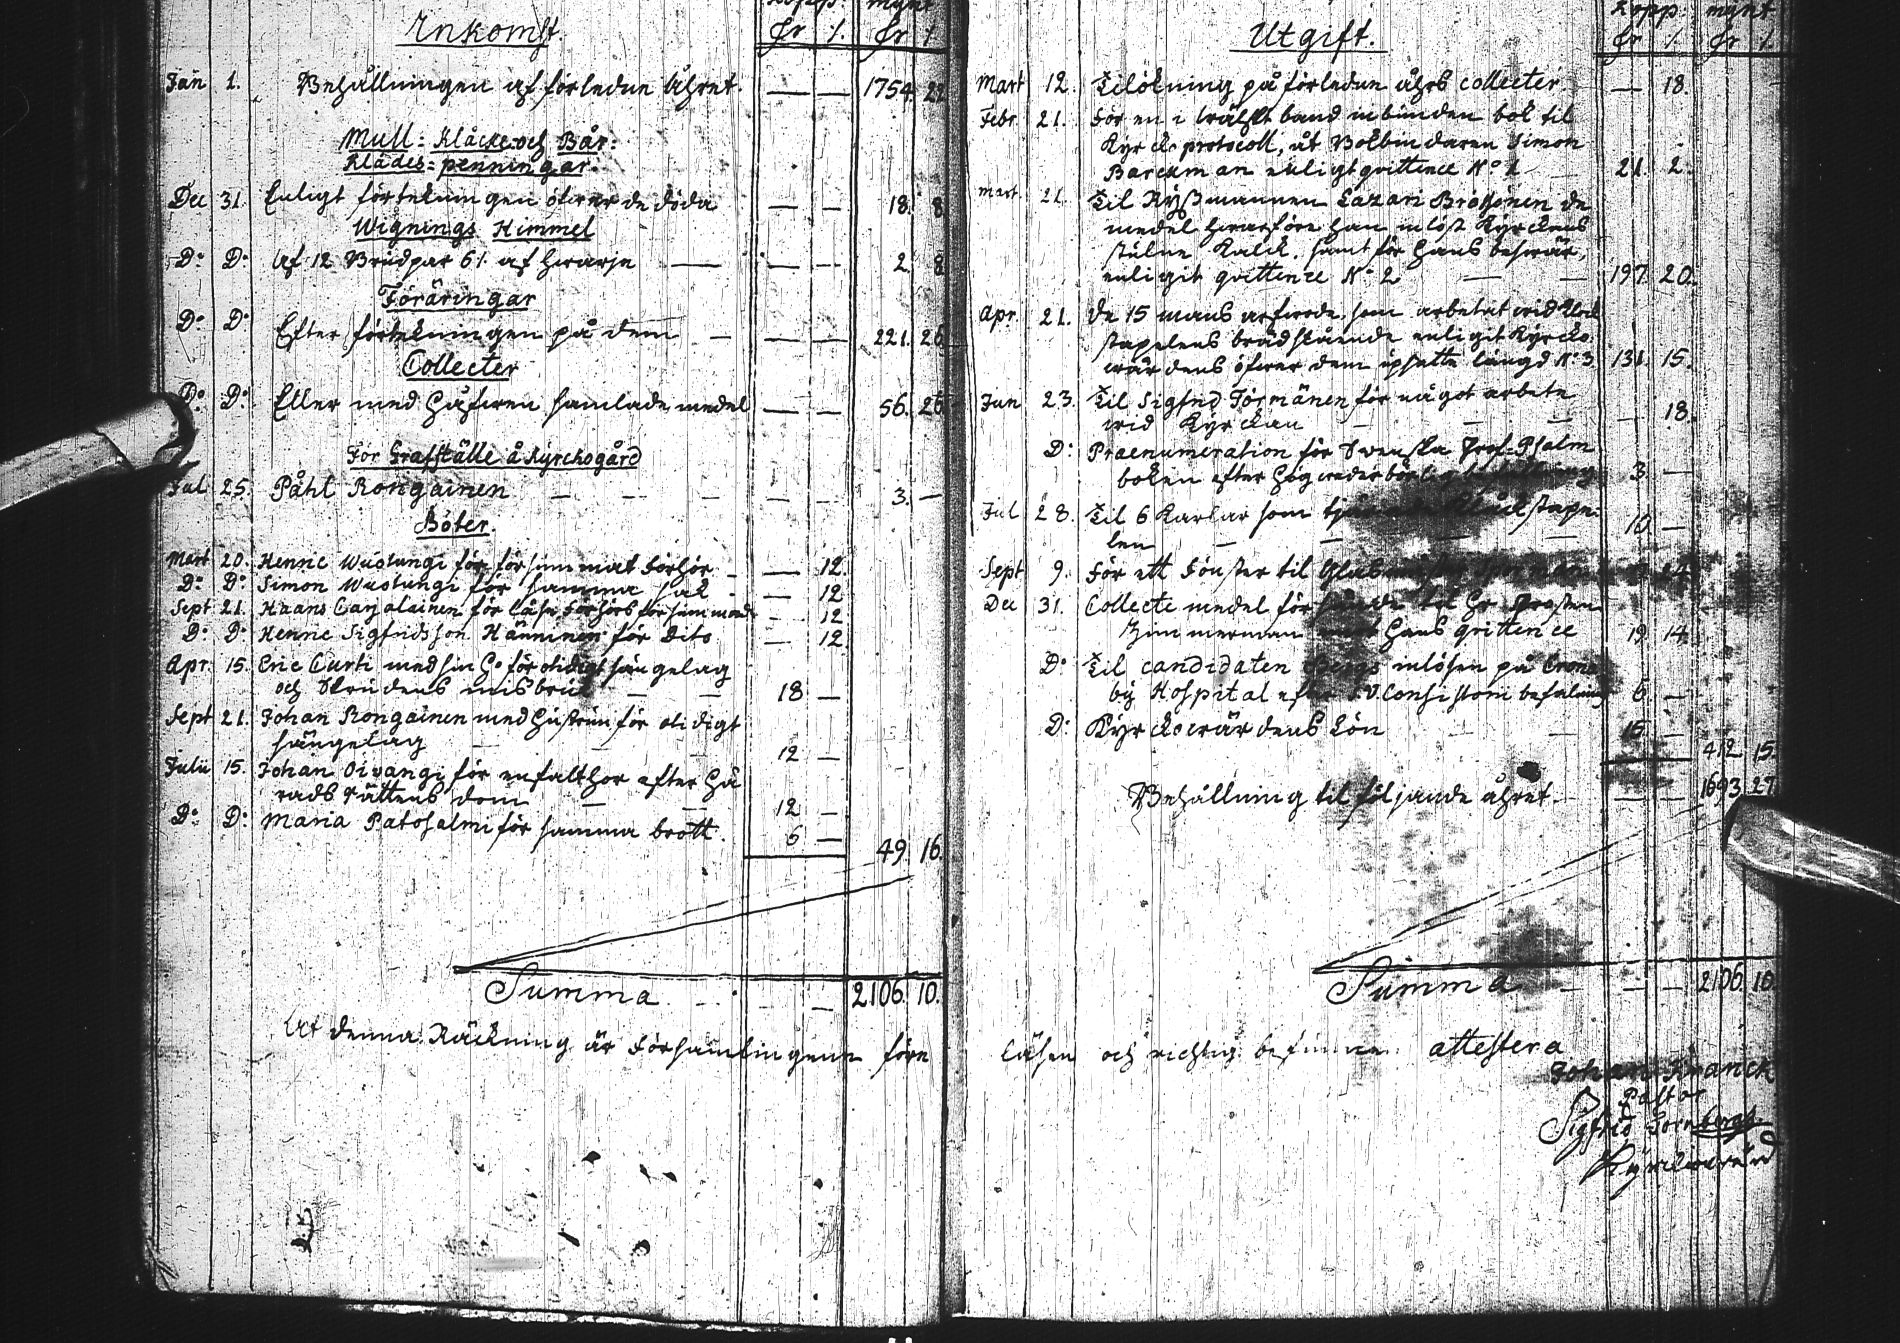 Inkomst.
mynt
Dr /. Dr /.
Jan 1. Behållningen af förledne Åhret. — — 1754. 22
Mull: Kläcke och Bår:
Klädes=penningar.
Dec 31. Enligt förtekningen öfver de döda — — 18. 8
Wignings Himmel
Do Do Af 12 Brudpar 6/. af hvarje — — — 2. 8
Föräringar
Do Do Efter förtekningen på dem — — — 221. 26
Collecter
Do: Do: Eller med Håfven samlade medel — — 56. 26
För Grafställe å Kyrckogård
Jul 25. Påhl Rongainen — — — — — 3. —
Böter.
Mart 20. Henric Wustungi för försummat Förhör — — 12.
Do: Do: Simon Wustungi för samma sak — — 12
Sept 21. Haans Carjalainen för Läse Förhörs försummande - 12
Do: Do: Henric Sigfridsson Hänninen för Dito — 12.
Apr. 15. Eric Curti med sin Ho för otidigt sängelag
och Brudens misbruk — — 18 —
Sept 21. Johan Rongainen med Hustrun för otidigt
sängelag — — — 12 —
Julii 15. Johan Oivangi för enfalt hor efter Hä
rads Rättens dom — — 12 —
Do: Do: Maria Patosalmi för samma brott. 6 —
49. 16.
Summa — — — 2106. 10.
At denna Räckning är Församlingenn före
Utgift.
Kopp: mynt
Dr /. Dr /.
Mart 12. Tilökning på förledne åhrs collecter. — 18.
Febr. 21. För en i band inbunden bok til
Kyrcko protocoll, åt Bokbindaren Simon
Barckman enligt qvittence No 1 21. 2.
Mart. 21. Til Ryssmannen Lazari de
medel hvarföre han inlöst Kyrckans
stulne Kalck, samt för hans besvär,
enligit qvittence No 2 — — 197. 20.
Apr. 21. De 15 mans arfvode, som arbetat vid Klock
stapelens brädslående enligit Kyrcko
värdens öfver dem upsatte längd No 3 131. 15.
Jun 23. Til Sigfrid Törmänen för något arbete
vid Kyrckan — — — 18.
D: Praenumeration för Svenska Prof-Psalm
boken efter Högvederbörlig befallning 3. —
Jul 28. Til 6 Karlar som Klåckstape:
len — — — — 10. —
Sept 9. För ett Fönster til
Dec 31. Collecte medel för til Hr Prosten
Zimmerman hans qvittence 19. 14.
Do Til candidaten Bergs inlösen på Crono
by Hospital efter V. Consistorii befalning 6. —
D: Kyrckovärdens Lön — 15. —
412 15.
Behållning til följande åhret. — — 1693. 27
Summa — — — 2106. 10
läsen och richtig befunnen attestera
Johan Kranck
Pastor
Sigfrid Tornberg
Kyrckovärd